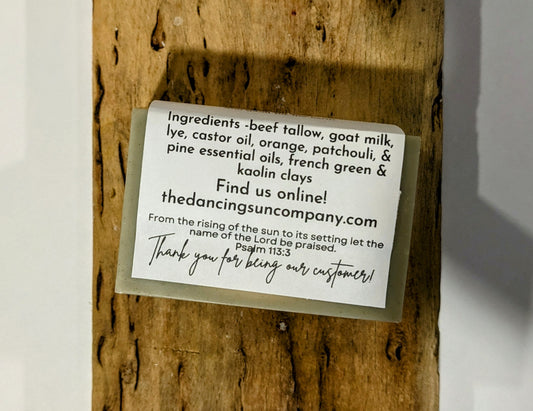 Ingredients -beef tallow, goat milk,
lye, castor oil, orange, patchouli, &
pine essential oils, french green &
kaolin clays
Find us online!
thedancingsuncompany.com
From the rising of the sun to its setting let the
name of the Lord be praised.
Psalm 113:3
Thank you for being our customer!